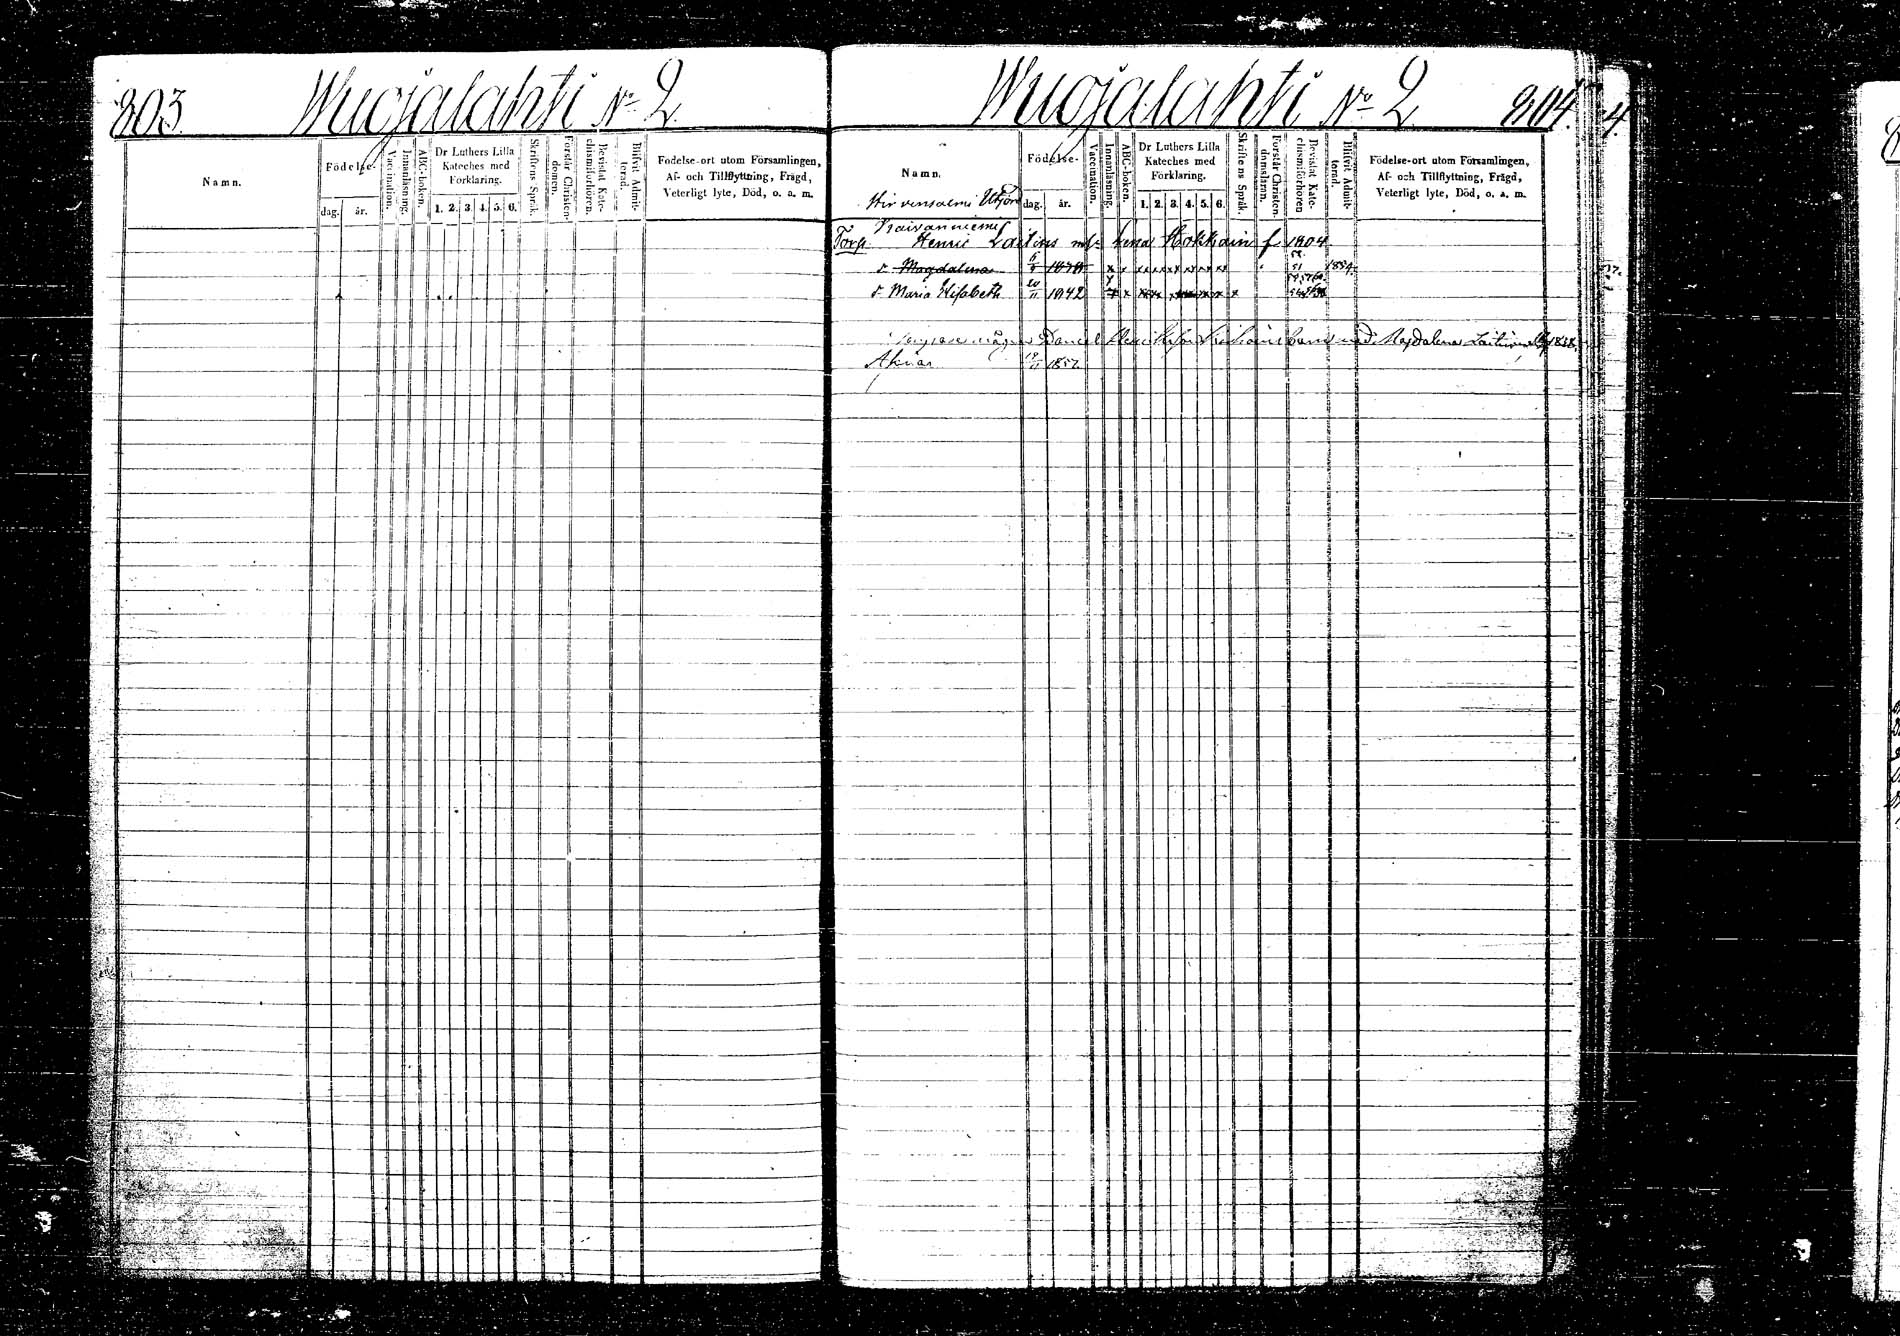 803.
Wuojalahti No 2.
Namn.
Födelse-
dag.
år.
Vaccination.
Innanläsning.
ABC-boken.
Dr Luthers Lilla
Kateches med
Förklaring.
1. 2. 3. 4. 5. 6.
Skriftens Språk.
Förstår Christen-
domen.
Bevistat Kate-
chismiförhören.
Blifvit Admit-
terad.
Födelse-ort utom Församlingen,
Af- och Tillflyttning, Frägd,
Veterligt lyte, Död, o. a. m.
Wuojalahti No 2.
804.
4.
Namn.
Födelse-
dag.
år.
Vaccination.
Innanläsning.
ABC-boken.
Dr Luthers Lilla
Kateches med
Förklaring.
1. 2. 3. 4. 5. 6.
Skriftens Språk.
Förstår Christen-
domsläran.
Bevistat Kate-
chismiförhören
Blifvit Admit-
terad.
Födelse-ort utom Församlingen,
Af- och Tillflyttning, Frägd,
Veterligt lyte, Död, o. a. m.
Hirvensalmi
Torp. Henric Laitins Lena Hokkain f 1804
d. Magdalena 1854.
d. Maria Elisabeth 20/11 1842
Daniel Magdalena 1858.
1857.